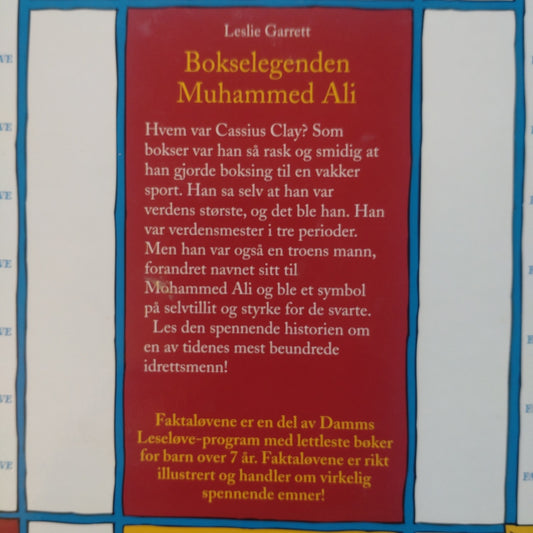 Leslie Garrett
Bokselegenden
Muhammed Ali
Hvem var Cassius Clay? Som
bokser var han så rask og smidig at
han gjorde boksing til en vakker
sport. Han sa selv at han var
verdens største, og det ble han. Han
var verdensmester i tre perioder.
Men han var også en troens mann,
forandret navnet sitt til
Mohammed Ali og ble et symbol
på selvtillit og styrke for de svarte.
Les den spennende historien om
en av tidenes mest beundrede
idrettsmenn!
Faktaløvene er en del av Damms
Leseløve-program med lettleste bøker
for barn over 7 år. Faktaløvene er rikt
illustrert og handler om virkelig
spennende emner!